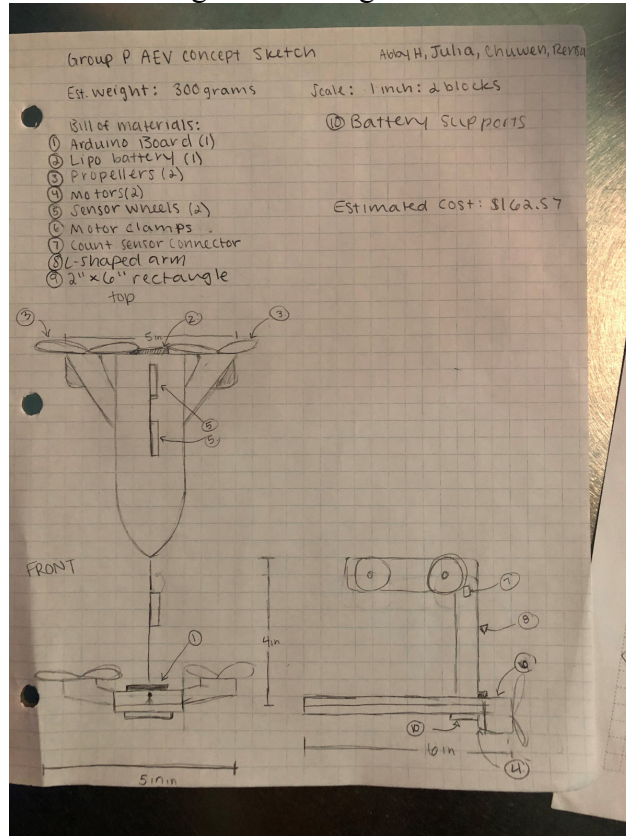 Group P AEV Concept Sketch
Abby H, Julia, Chuwen, Rensa
Est. weight: 300 grams
Scale: 1 inch: 2 blocks
Bill of materials:
① Arduino Board (1)
② Lipo battery (1)
③ Propellers (2)
④ Motors (2)
⑤ Sensor wheels (2)
⑥ Motor clamps
⑦ Count sensor connector
⑧ L-shaped arm
⑨ 2" x 6" rectangle
⑩ Battery Supports
Estimated Cost: $162.57
top
③
5in
②
③
⑤
⑤
FRONT
⑦
①
4in
⑧
⑩
④
6in
5in